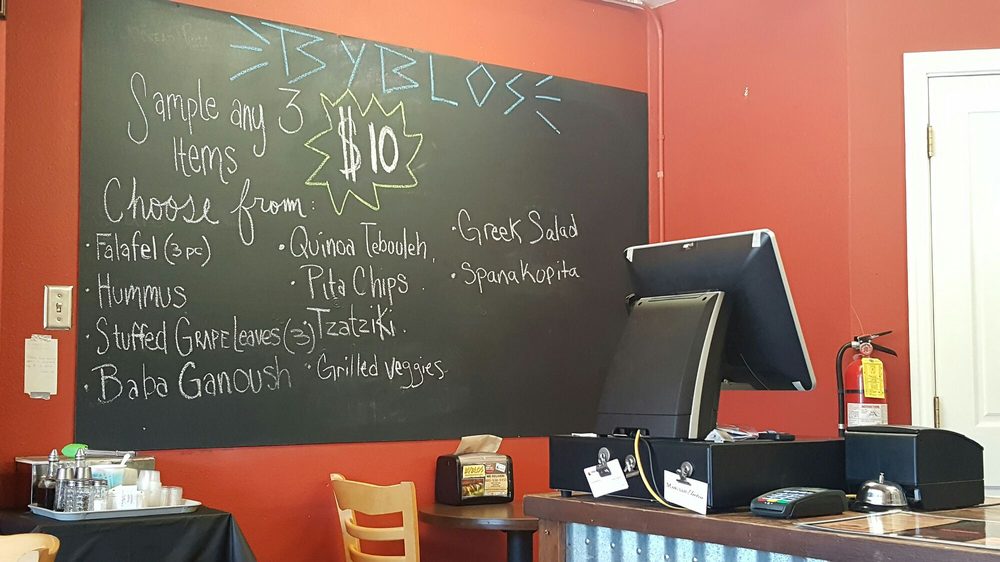 BYBLOS
Sample any 3
Items
$10
Choose from:
· Falafel (3pc)
· Hummus
· Stuffed GRAPE Leaves (3)
· Baba Ganoush
· Quinoa Tebouleh
· Pita Chips
· Tzatziki
· Grilled veggies
· Greek Salad
· Spanakopita